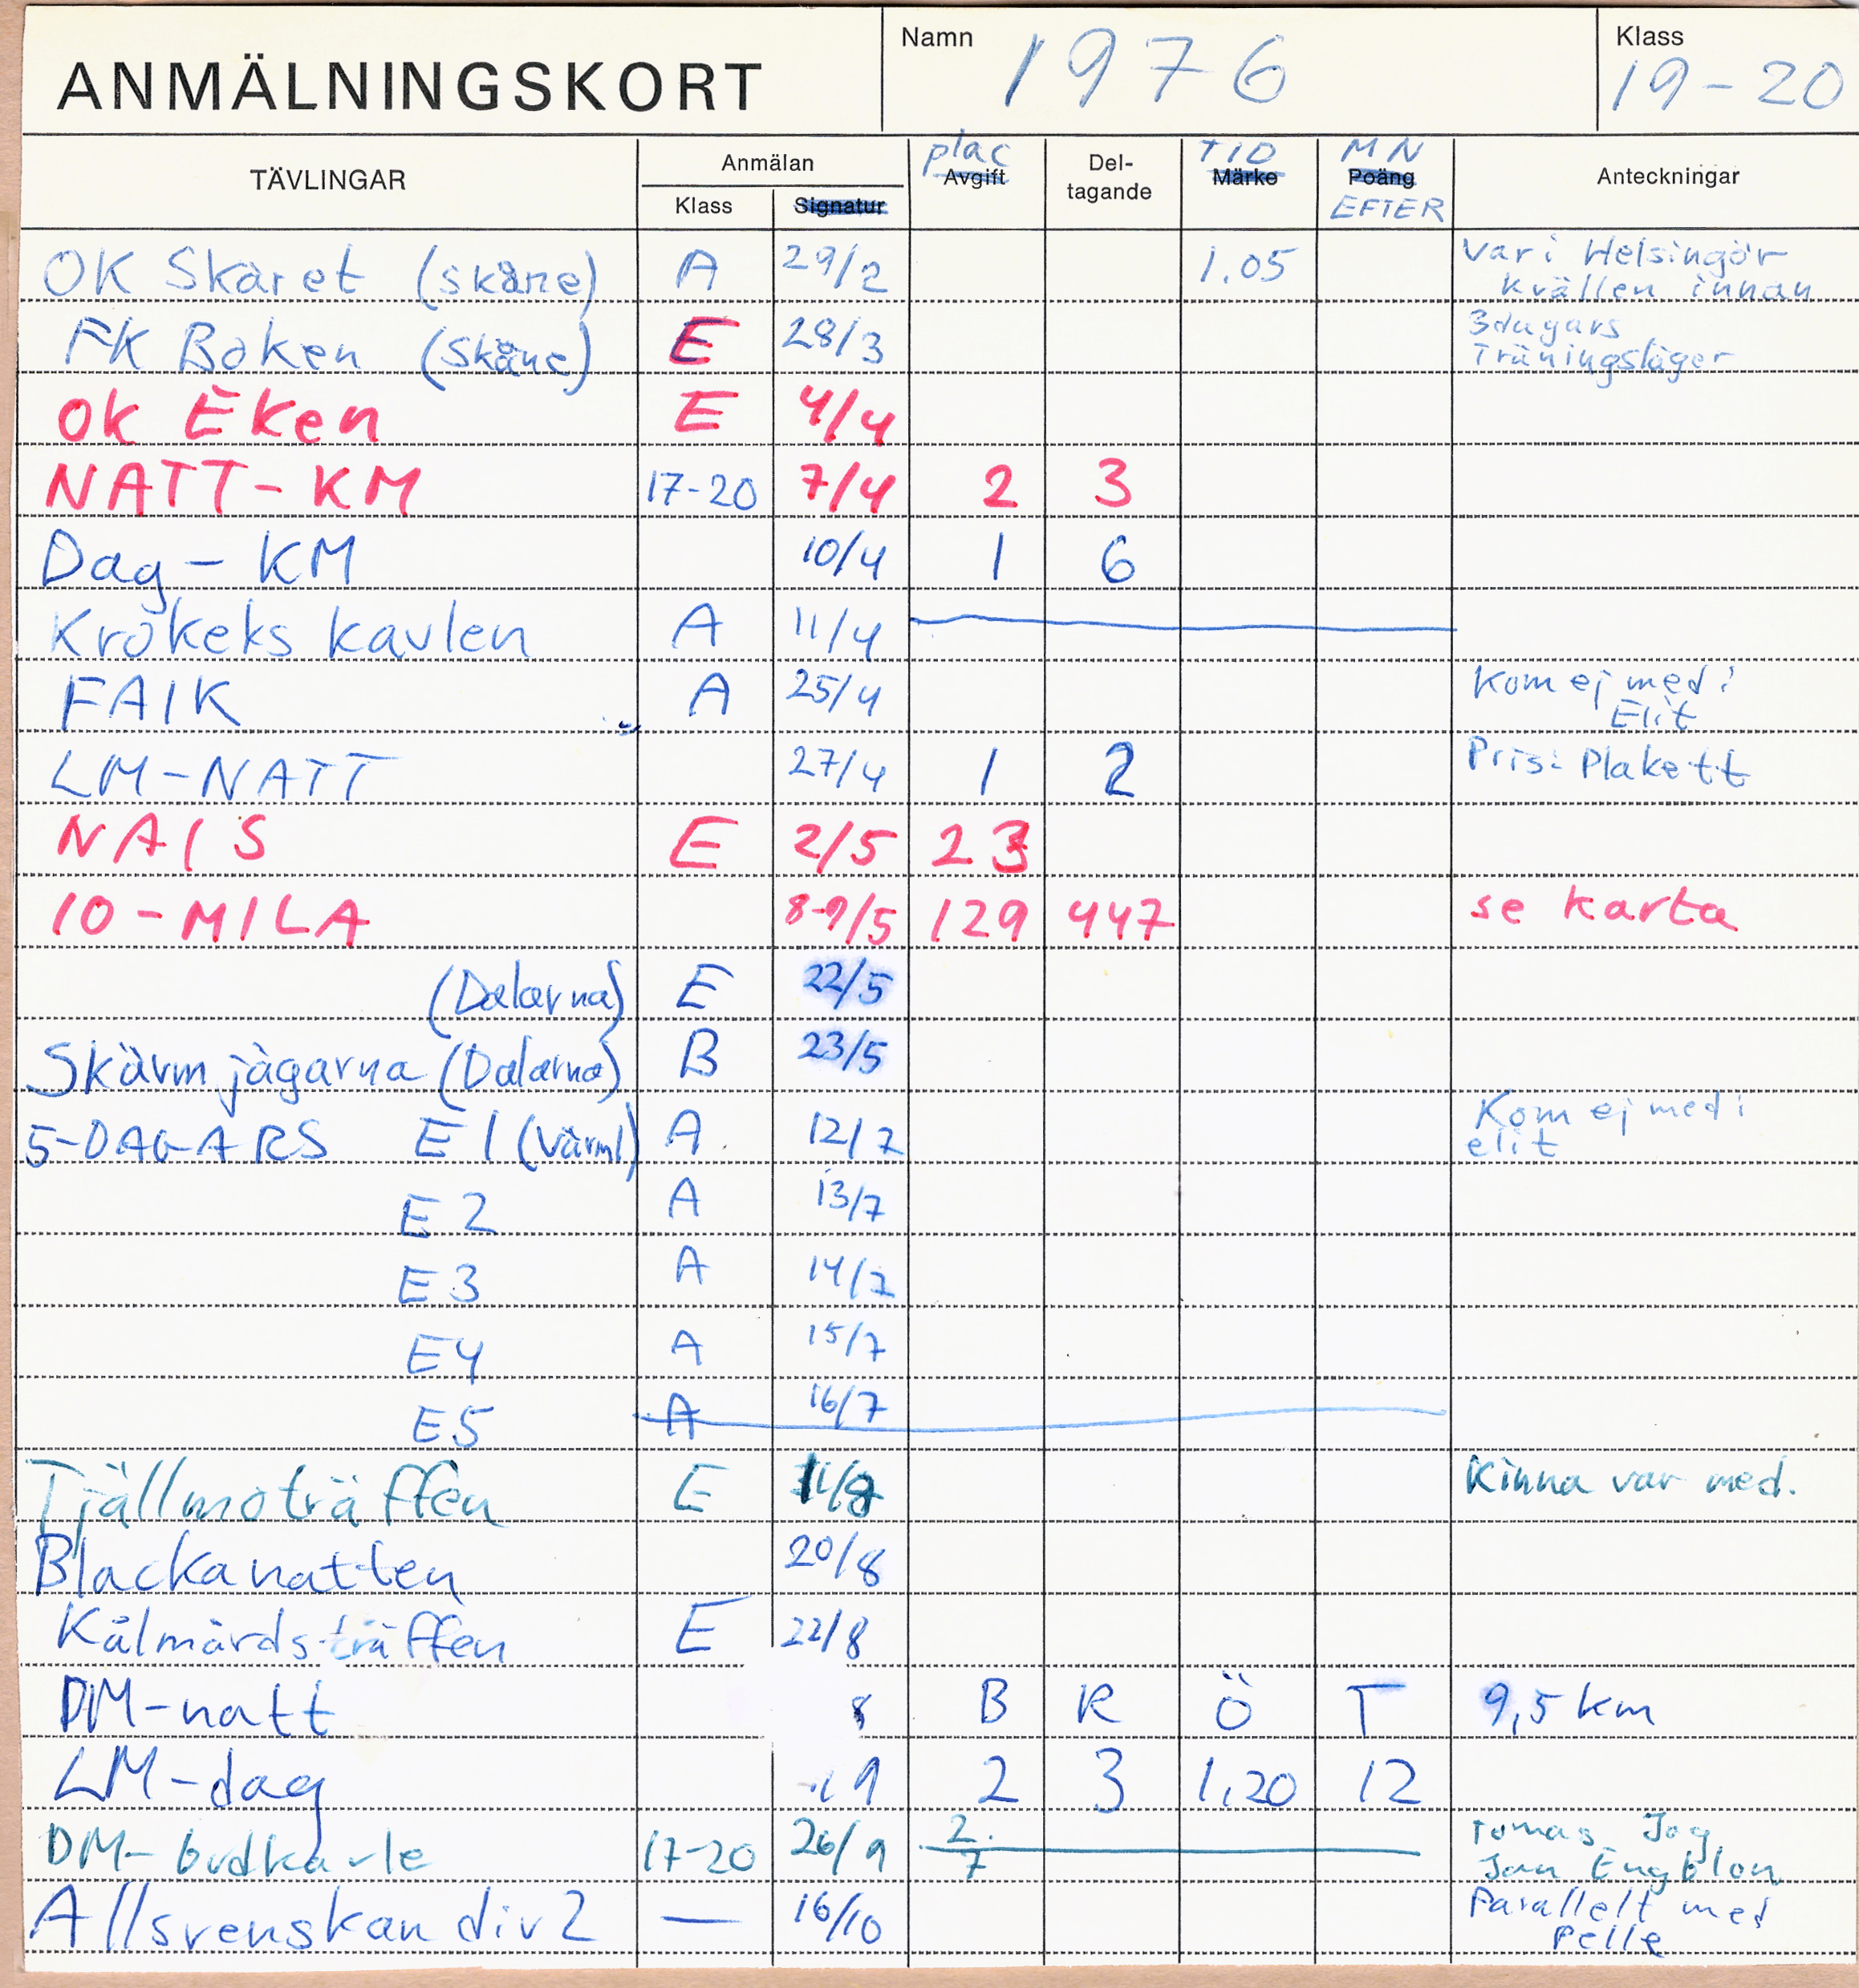 ANMÄLNINGSKORT Namn 1976 Klass 19-20
TÄVLINGAR Anmälan Klass Signatur plac Avgift Del-tagande TID Märke MN Poäng EFTER Anteckningar
OK Skäret (skåne) A 29/2 1.05 Var i Helsingör
kvällen innan
FK Boken (Skåne) E 28/3 3dagars
Träningsläger
OK Eken E 4/4
NATT-KM 17-20 7/4 2 3
Dag-KM 10/4 1 6
Krokeks kavlen A 11/4
FAIK A 25/4 Kom ej med i
Elit
LM-NATT 27/4 1 2 Pris: Plakett
NAIS E 2/5 23
10-MILA 8-9/5 129 447 se karta
(Dalarna) E 22/5
Skärmjägarna (Dalarna) B 23/5
5-DAGARS E1 (Värml) A 12/7 Kom ej med i
elit
E2 A 13/7
E3 A 14/7
E4 A 15/7
E5 A 16/7
Tjällmoträffen E 11/8 Kinna var med.
Blackanatten 20/8
Kålmårdsträffen E 22/8
DM-natt 8 B R Ö T 9,5 km
LM-dag 9 2 3 1,20 12
DM-budkavle 17-20 26/9 2/7 Tomas Jag
Jan Engblon
Allsvenskan div 2 — 16/10 Parallelt med
Pelle